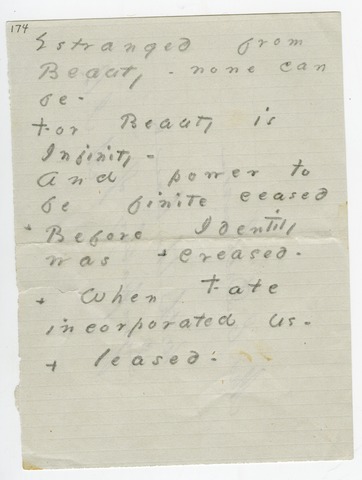 174
Estranged from
Beauty - none can
be -
For Beauty is
Infinity -
And power to
be finite ceased
+ Before Identity
was + creased -
+ When Fate
incorporated us -
+ leased -